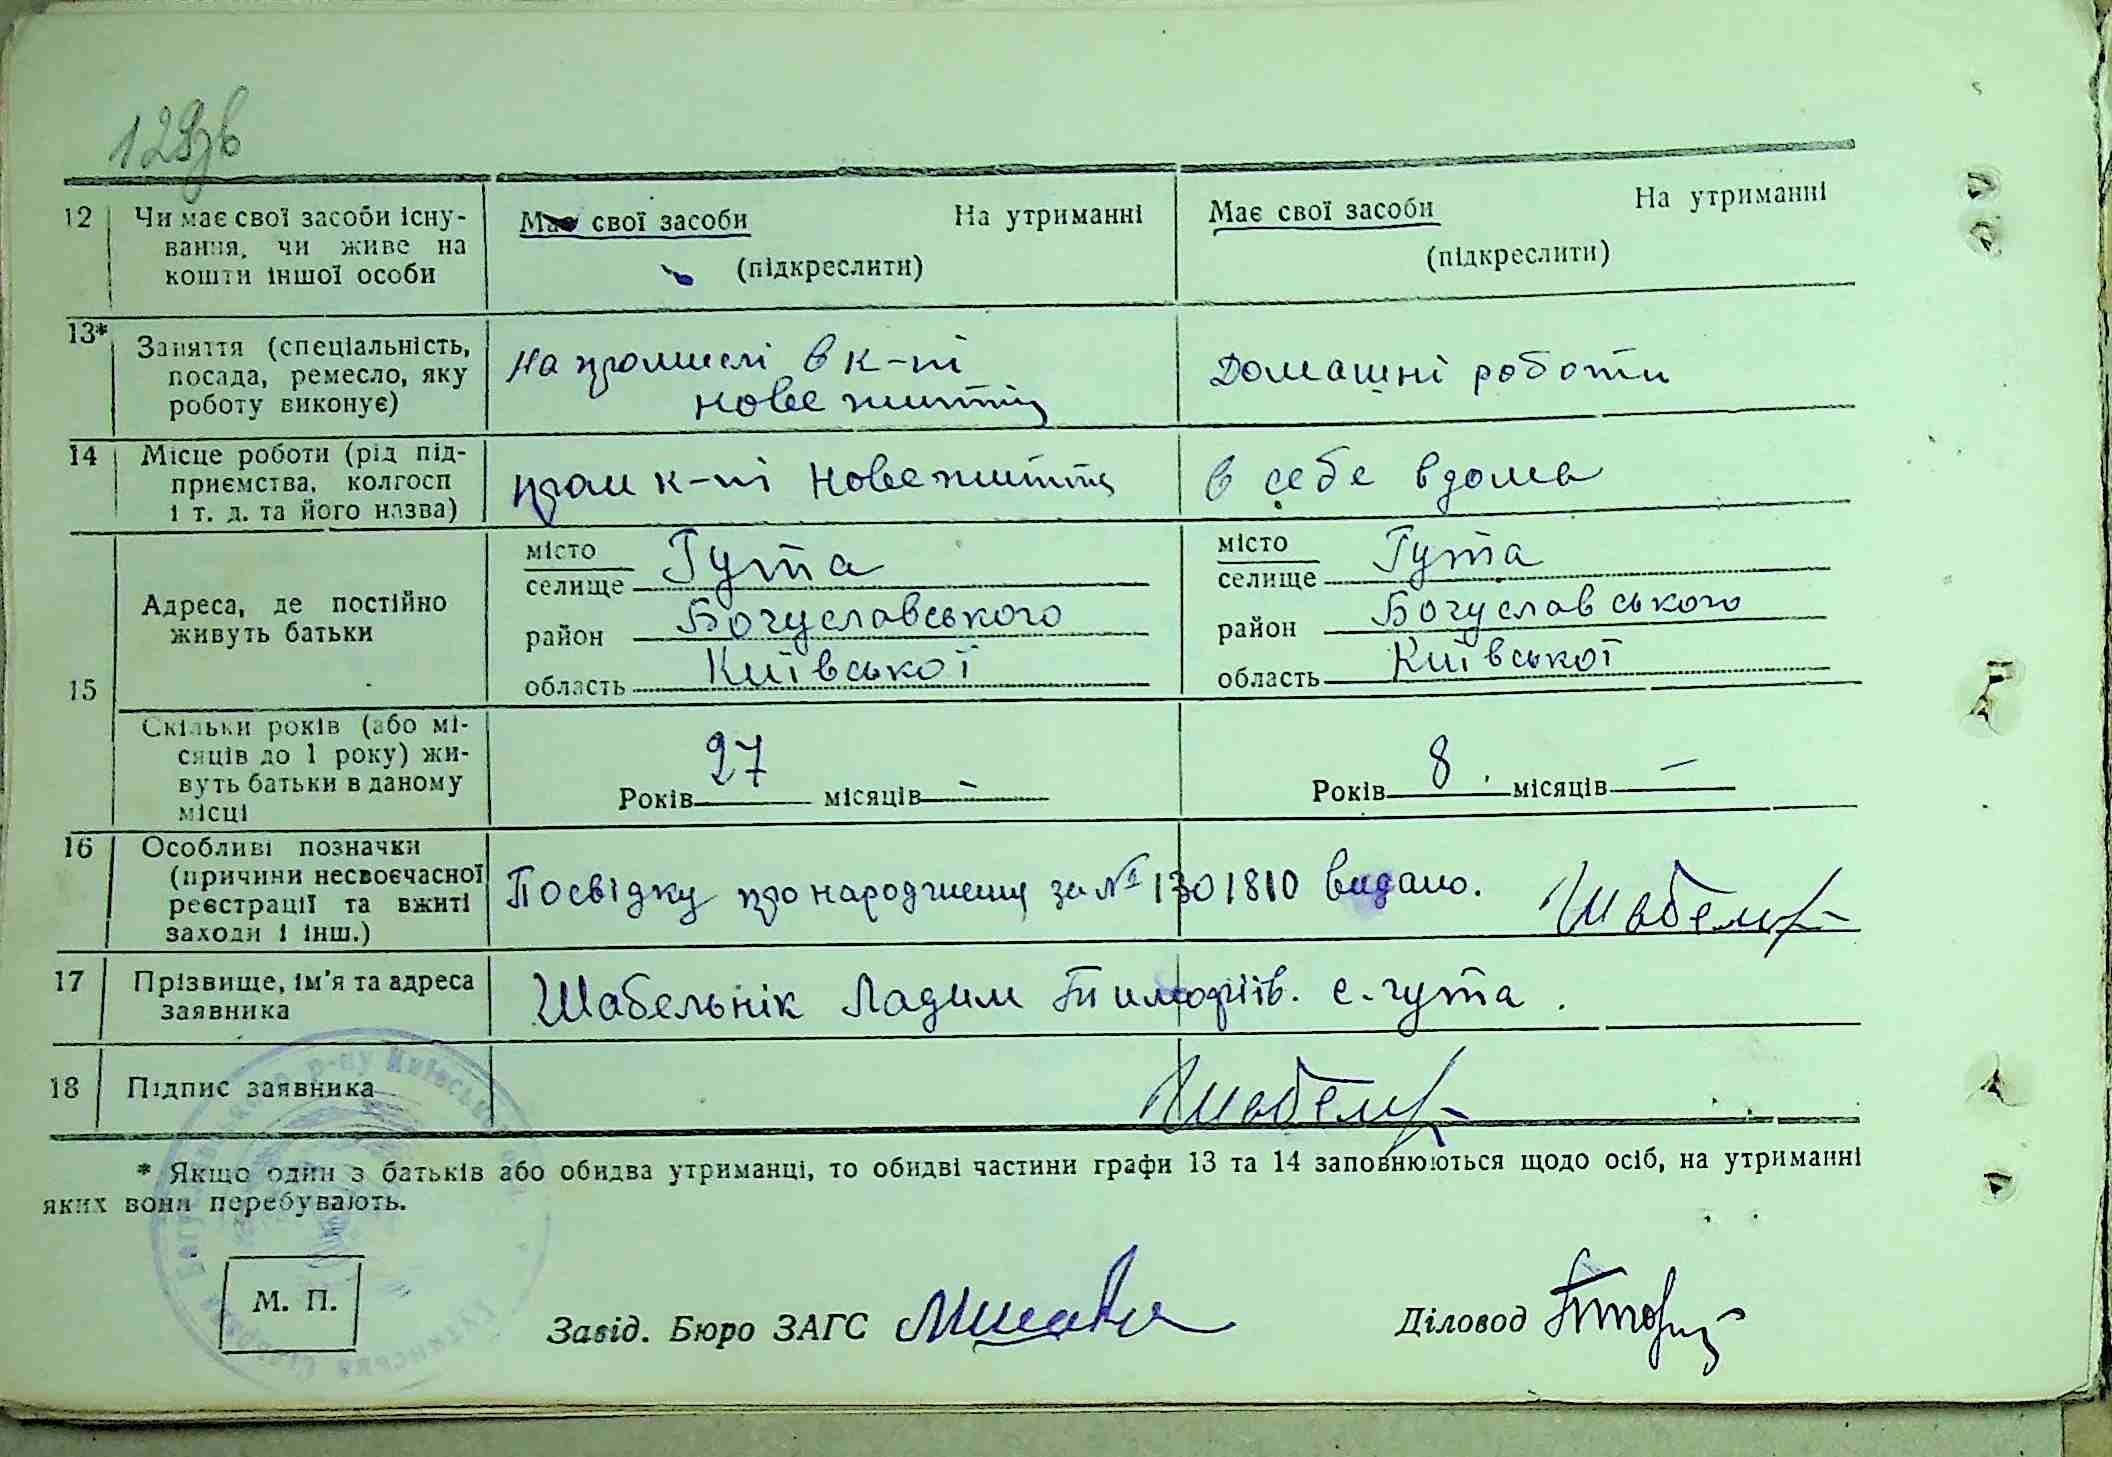 129зв
12 Чи має свої засоби існу-
вання, чи живе на
кошти іншої особи
Має свої засоби На утриманні
(підкреслити)
Має свої засоби На утриманні
(підкреслити)
13* Заняття (спеціальність,
посада, ремесло, яку
роботу виконує)
На промислі в к-пі
нове життя
Домашні роботи
14 Місце роботи (рід під-
приємства, колгосп
і т. д. та його назва)
пром к-пі Нове життя
в себе вдома
15 Адреса, де постійно
живуть батьки
місто
селище Гута
район Богуславського
область Київської
місто
селище Гута
район Богуславського
область Київської
Скільки років (або мі-
сяців до 1 року) жи-
вуть батьки в даному
місці
Років 27 місяців –
Років 8 місяців –
16 Особливі позначки
(причини несвоєчасної
реєстрації та вжиті
заходи і інш.)
Посвідку про народження за № 1301810 видано.
17 Прізвище, ім'я та адреса
заявника
Шабельнік Ладим Тимофіїв. с. гута.
18 Підпис заявника
* Якщо один з батьків або обидва утриманці, то обидві частини графи 13 та 14 заповнюються щодо осіб, на утриманні
яких вони перебувають.
М. П.
Завід. Бюро ЗАГС
Діловод